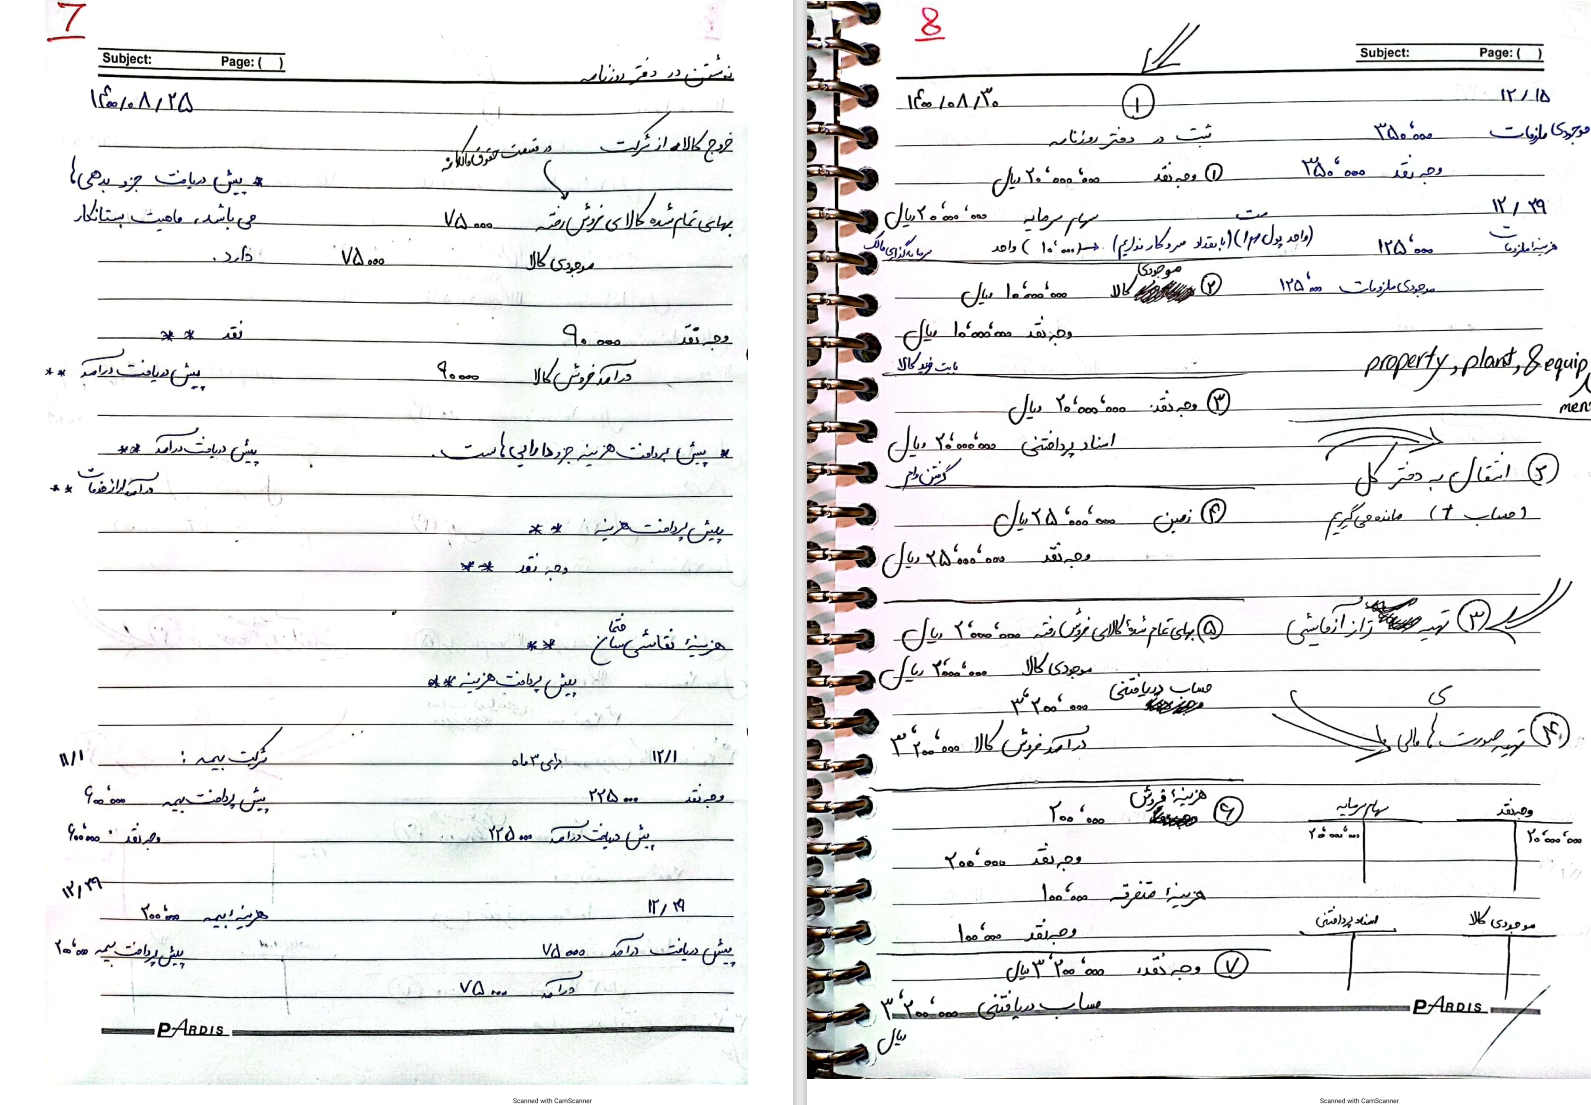 7
Subject: Page: ( )
نوشتن در دفتر روزنامه
۱۴۰۰/۰۸/۲۵
خروج کالا از شرکت در قسمت حقوق مالکانه
* پیش دریافت جزء بدهی‌ها
بهای تمام شده کالای فروش رفته ۷۵۰۰۰
می‌باشد، ماهیت بستانکار
موجودی کالا ۷۵۰۰۰
دارد.
وجه نقد ۹۰۰۰۰
نقد **
درآمد فروش کالا ۹۰۰۰۰
پیش دریافت درآمد **
* پیش پرداخت هزینه جزء دارایی هاست.
پیش دریافت درآمد **
درآمد ارائه خدمات **
پیش پرداخت هزینه **
وجه نقد **
هزینهٔ نقاشی ساختمان **
پیش پرداخت هزینه **
۱۲/۱ برای ۳ ماه
شرکت بیمه: ۱۱/۱
وجه نقد ۲۲۵۰۰۰
پیش پرداخت بیمه ۶۰۰٬۰۰۰
پیش دریافت درآمد ۲۲۵۰۰۰
وجه نقد ۶۰۰٬۰۰۰
۱۲/۲۹
۱۲/۲۹
هزینهٔ بیمه ۲۰۰٬۰۰۰
پیش دریافت درآمد ۷۵۰۰۰
پیش پرداخت بیمه ۲۰۰٬۰۰۰
درآمد ۷۵۰۰۰
PARDIS
Scanned with CamScanner
8
Subject: Page: ( )
۱۲/۱۵
موجودی ملزومات ۳۵۰٬۰۰۰
وجه نقد ۳۵۰٬۰۰۰
۱۲/۲۹
هزینهٔ ملزومات ۱۲۵٬۰۰۰
موجودی ملزومات ۱۲۵٬۰۰۰
property, plant, & equip
ment
② انتقال به دفتر کل
(حساب T) مانده می‌گیریم
③ تهیه تراز آزمایشی
④ تهیه صورت های مالی
وجه نقد
۲۰٬۰۰۰٬۰۰۰
سهام سرمایه
۲۰٬۰۰۰٬۰۰۰
موجودی کالا
اسناد پرداختنی
۱۴۰۰/۰۸/۳۰ ①
ثبت در دفتر روزنامه
① وجه نقد ۲۰٬۰۰۰٬۰۰۰ ریال
سهام سرمایه ۲۰٬۰۰۰٬۰۰۰ ریال
(واحد پول م!) (با تعداد سروکار نداریم) → (۱۰٬۰۰۰) واحد
سرمایه گذاری مالک
② موجودی کالا ۱۰٬۰۰۰٬۰۰۰ ریال
وجه نقد ۱۰٬۰۰۰٬۰۰۰ ریال
بابت خرید کالا
③ وجه نقد ۲۰٬۰۰۰٬۰۰۰ ریال
اسناد پرداختنی ۲۰٬۰۰۰٬۰۰۰ ریال
گرفتن وام
④ زمین ۲۵٬۰۰۰٬۰۰۰ ریال
وجه نقد ۲۵٬۰۰۰٬۰۰۰ ریال
⑤ بهای تمام شدهٔ کالای فروش رفته ۲٬۰۰۰٬۰۰۰ ریال
موجودی کالا ۲٬۰۰۰٬۰۰۰ ریال
حساب دریافتنی ۳٬۲۰۰٬۰۰۰
درآمد فروش کالا ۳٬۲۰۰٬۰۰۰
⑥ هزینهٔ فروش ۲۰۰٬۰۰۰
وجه نقد ۲۰۰٬۰۰۰
هزینهٔ متفرقه ۱۰۰٬۰۰۰
وجه نقد ۱۰۰٬۰۰۰
⑦ وجه نقد ۳٬۲۰۰٬۰۰۰ ریال
حساب دریافتنی ۳٬۲۰۰٬۰۰۰
ریال
PARDIS
Scanned with CamScanner